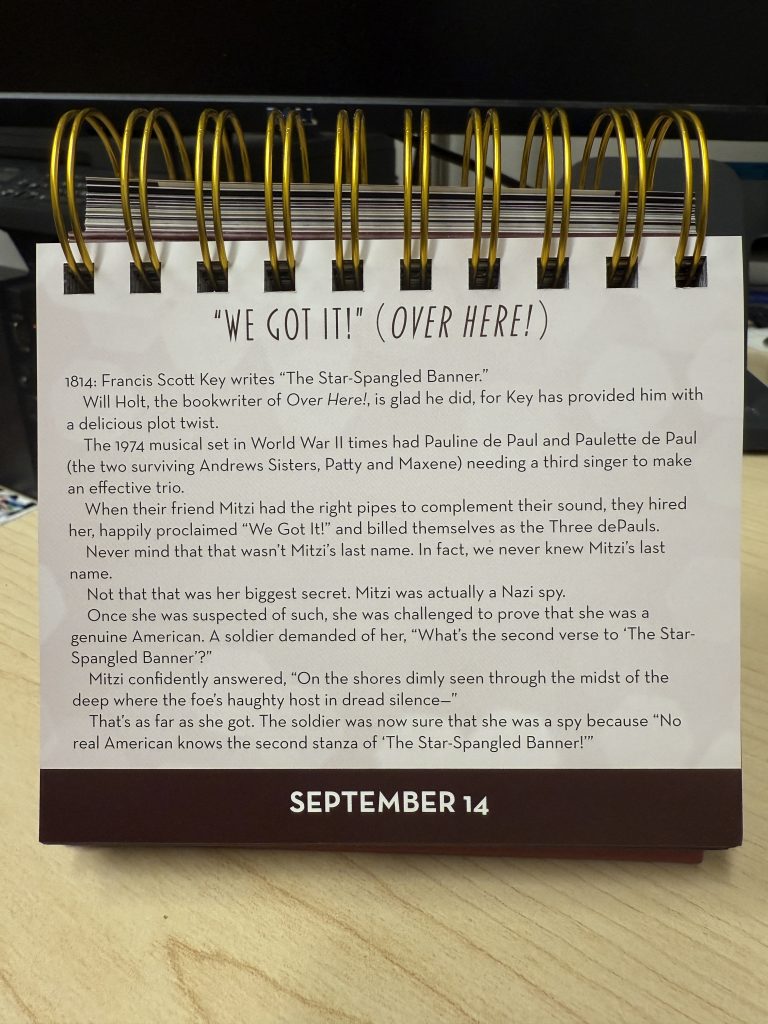 “WE GOT IT!” (OVER HERE!)
1814: Francis Scott Key writes “The Star-Spangled Banner.”
Will Holt, the bookwriter of Over Here!, is glad he did, for Key has provided him with
a delicious plot twist.
The 1974 musical set in World War II times had Pauline de Paul and Paulette de Paul
(the two surviving Andrews Sisters, Patty and Maxene) needing a third singer to make
an effective trio.
When their friend Mitzi had the right pipes to complement their sound, they hired
her, happily proclaimed “We Got It!” and billed themselves as the Three dePauls.
Never mind that that wasn’t Mitzi’s last name. In fact, we never knew Mitzi’s last
name.
Not that that was her biggest secret. Mitzi was actually a Nazi spy.
Once she was suspected of such, she was challenged to prove that she was a
genuine American. A soldier demanded of her, “What’s the second verse to ‘The Star-
Spangled Banner’?”
Mitzi confidently answered, “On the shores dimly seen through the midst of the
deep where the foe’s haughty host in dread silence—”
That’s as far as she got. The soldier was now sure that she was a spy because “No
real American knows the second stanza of ‘The Star-Spangled Banner!’”
SEPTEMBER 14